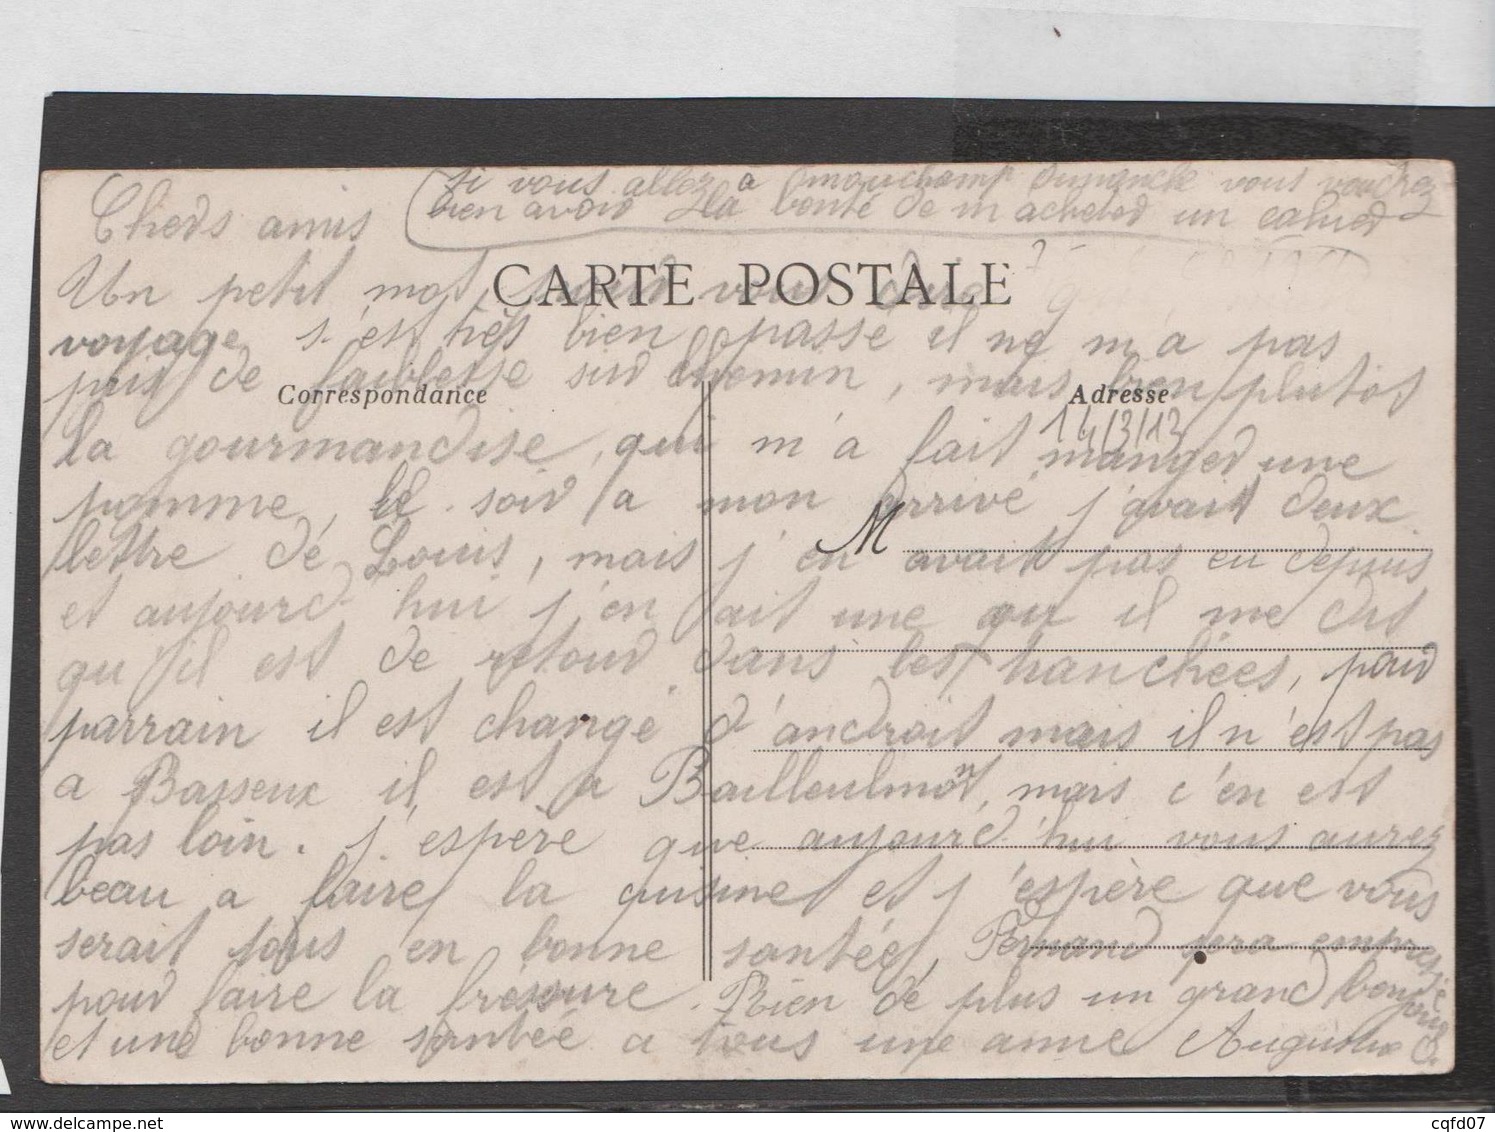 si vous allez a Monchamp Dimanche vous voudrez
bien avoir la bonté de m acheter un cahier
Chers amis
CARTE POSTALE
Un petit mot pour vous dire que
voyage s'est très bien passé il ne m'a pas
pris de faiblesse sur chemin, mais bien plutot
Correspondance
Adresse
14/3/13
la gourmandise, qui m'a fait manger une
pomme, le soir a mon arrivé j'avait deux
M
lettre de Louis, mais j'en avait pas eu depuis
et aujourd'hui j'en ait une ou il me dit
qu'il est de retour dans les tranchées, pour
parrain il est changé d'androit mais il n'est pas
a Basseux il est a Bailleulmont, mais c'en est
pas loin. j'espère que aujourd'hui vous aurez
beau a faire la cuisine et j'espère que vous
serait tous en bonne santée, Fernand sera empressé
pour faire la fressure. Rien de plus un grand bonjour
et une bonne santée a tous une amie Augustine D.
delcampe.net
cqfd07